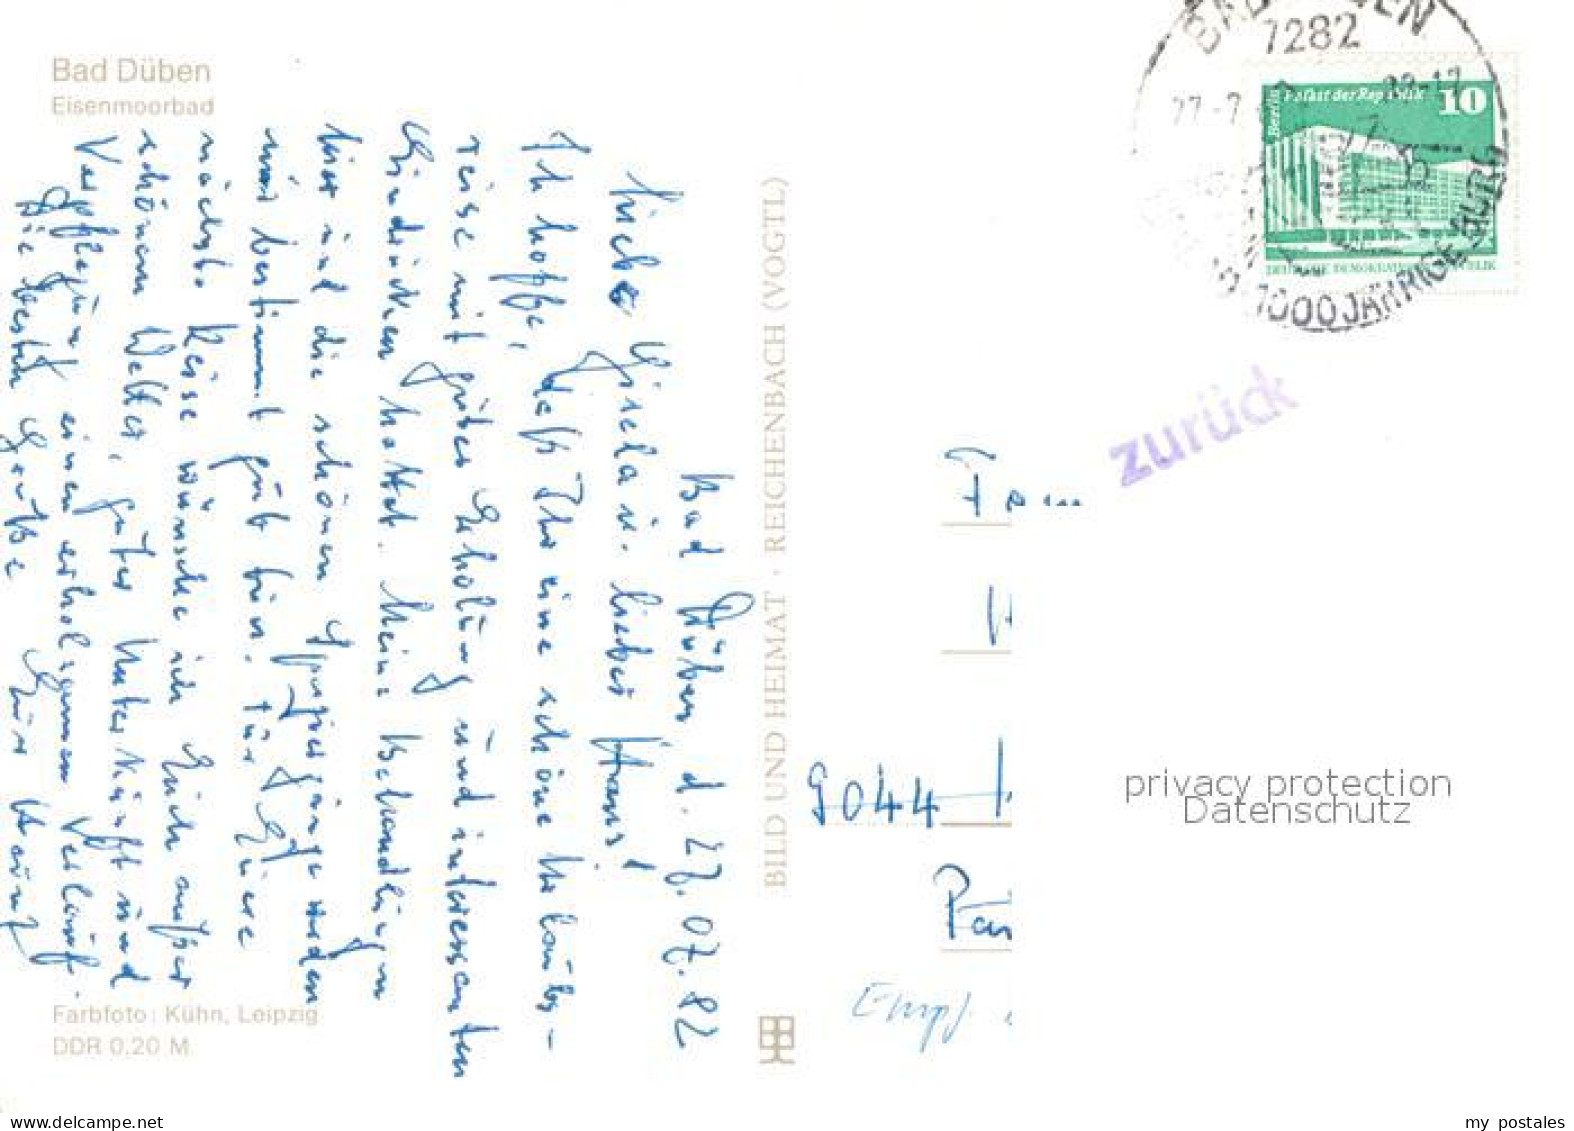 Bad Düben
Eisenmoorbad
Bad Düben, d. 27.07.82
Liebe Gisela u. lieber Hans!
Ich hoffe, daß Ihr eine schöne Urlaubs-
reise mit guter Erholung und interessanten
Eindrücken hattet. Meine Behandlungen
hier und die schönen Spaziergänge werden
mir bestimmt gut tun. Für Eure
nächste Reise wünsche ich Euch außer
schönem Wetter, guter Unterkunft und
Verpflegung einen erholsamen Verlauf.
Die besten Grüße Euer
Farbfoto: Kühn, Leipzig
DDR 0,20 M
BILD UND HEIMAT · REICHENBACH (VOGTL)
7282
27.-7
1000JÄHRIGE BURG
Berlin Palast der Republik 10
DEUTSCHE DEMOKRATISCHE REPUBLIK
zurück
Fam
9044
Empf
privacy protection
Datenschutz
www.delcampe.net
my_postales